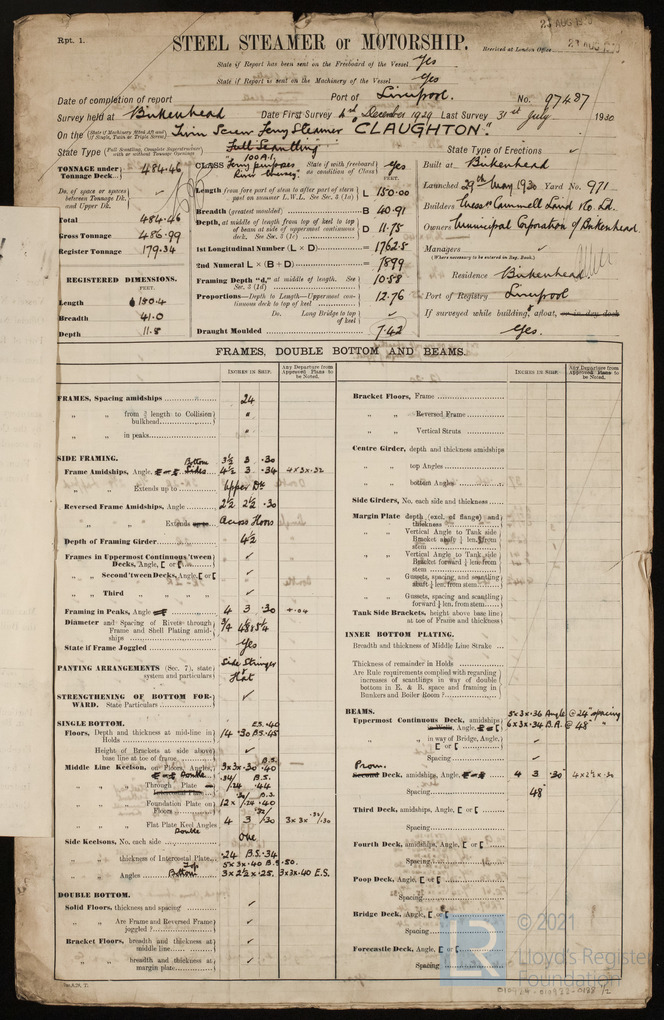 Rpt. 1.
STEEL STEAMER or MOTORSHIP.
Received at London Office
State if Report has been sent on the Freeboard of the Vessel Yes
State if Report is sent on the Machinery of the Vessel Yes
Date of completion of report Port of Liverpool. No. 97487
Survey held at Birkenhead Date First Survey 4th December 1929 Last Survey 31st July 1930
On the (State if Machinery fitted Aft and if Single, Twin or Triple Screw) Twin Screw Ferry Steamer "CLAUGHTON".
State Type (Full Scantling, Complete Superstructure with or without Tonnage Openings) Full Scantling State Type of Erections ✓
TONNAGE under Tonnage Deck 484.46
Do. of space or spaces between Tonnage Dk. and Upper Dk. ✓
Total 484.46
Gross Tonnage 486.99
Register Tonnage 179.34
REGISTERED DIMENSIONS.
FEET.
Length 150.4
Breadth 41.0
Depth 11.8
CLASS 100 A.1. "Ferry purposes River Mersey" State if with freeboard as condition of Class Yes
FEET.
Length from fore part of stem to after part of stern post on summer L.W.L. See Sec. 3 (1a) L 150.00
Breadth (greatest moulded) B 40.91
Depth, at middle of length from top of keel to top of beam at side of uppermost continuous deck. See Sec. 3 (1c) D 11.75
1st Longitudinal Number (L × D) = 1762.5
2nd Numeral L × (B + D) = 7899
Framing Depth "d," at middle of length. See Sec. 3 (1d) 10.58
Proportions—Depth to Length—Uppermost continuous deck to top of keel 12.76
Do. Long Bridge to top of keel ✓
Draught Moulded 7.42
Built at Birkenhead
Launched 29th May 1930 Yard No. 971
Builders Messrs Cammell Laird & Co. Ld.
Owners Municipal Corporation of Birkenhead.
Managers ✓
(Where necessary to be entered in Reg. Book.)
Residence Birkenhead
Port of Registry Liverpool
If surveyed while building, afloat, or in dry dock
Yes.
FRAMES, DOUBLE BOTTOM AND BEAMS.
INCHES IN SHIP.
Any Departure from Approved Plans to be Noted.
FRAMES, Spacing amidships 24
" " from 3/5 length to Collision bulkhead "
" " in peaks "
SIDE FRAMING.
Bottom 3½ 3 .30
Frame Amidships, Angle, Sides 4½ 3 .34 4×3×.32
" " Extends up to Upper Dk
Reversed Frame Amidships, Angle 2½ 2½ .30
" " Extends Across Floors
Depth of Framing Girder 4½
Frames in Uppermost Continuous 'tween Decks, Angle, [ or [ ✓
" " Second 'tween Decks, Angle, [ or [ ✓
" " Third " " " " ✓
Framing in Peaks, Angle 4 3 .30 +.04
Diameter and Spacing of Rivets through Frame and Shell Plating amidships
State if Frame Joggled Yes
PANTING ARRANGEMENTS (Sec. 7), state system and particulars Side Stringer & Flat
STRENGTHENING OF BOTTOM FORWARD. State Particulars ✓
SINGLE BOTTOM.
E.S. .40
Floors, Depth and thickness at mid-line in Holds 14 .30 B.S. .45
Height of Brackets at side above base line at toe of frame ✓
Middle Line Keelson, on Floors, Angles, Double 3×3×.30 B.S. .40
" " Through Plate
" " Foundation Plate on Floors
" " Flat Plate Keel Angles Double
Side Keelsons, No. each side One
" " thickness of Intercostal Plate .24 B.S. .34
Top 5×3×.40 B.S. .50.
" " Angles Bottom 3×2½×.25. 3×3×.40 E.S.
DOUBLE BOTTOM.
Solid Floors, thickness and spacing ✓
" " Are Frame and Reversed Frame joggled? ✓
Bracket Floors, breadth and thickness at middle line ✓
" " breadth and thickness at margin plate ✓
INCHES IN SHIP.
Any Departure from Approved Plans to be Noted.
Bracket Floors, Frame
" " Reversed Frame
" " Vertical Struts
Centre Girder, depth and thickness amidships
" " top Angles
" " bottom Angles
Side Girders, No. each side and thickness
Margin Plate depth (excl. of flange) and thickness
" " Vertical Angle to Tank side Bracket abaft ¼ len. from stem
" " Vertical Angle to Tank side Bracket forward ¼ len. from stem
" " Gussets, spacing and scantling abaft ¼ len. from stem
" " Gussets, spacing and scantling forward ¼ len. from stem
Tank Side Brackets, height above base line at toe of Frame and thickness
INNER BOTTOM PLATING.
Breadth and thickness of Middle Line Strake
Thickness of remainder in Holds
Are Rule requirements complied with regarding increases of scantlings in way of double bottom in E. & B. space and framing in Bunkers and Boiler Room?
BEAMS.
Uppermost Continuous Deck, amidships 5×3×.36 Angle @ 24" spacing
in Wells, Angle, 6×3×.34 B.A. @ 48" "
" " in way of Bridge, Angle, [ or [ ✓
Spacing ✓
Prom.
Second Deck, amidships, Angle, 4 3 .30 4×2½×.30
Spacing 48
Third Deck, amidships, Angle, [ or [
Spacing
Fourth Deck, amidships, Angle, [ or [
Spacing
Poop Deck, Angle, [ or [
Spacing
Bridge Deck, Angle, [ or [
Spacing
Forecastle Deck, Angle, [ or [
Spacing
© 2021
Lloyd's Register
Foundation